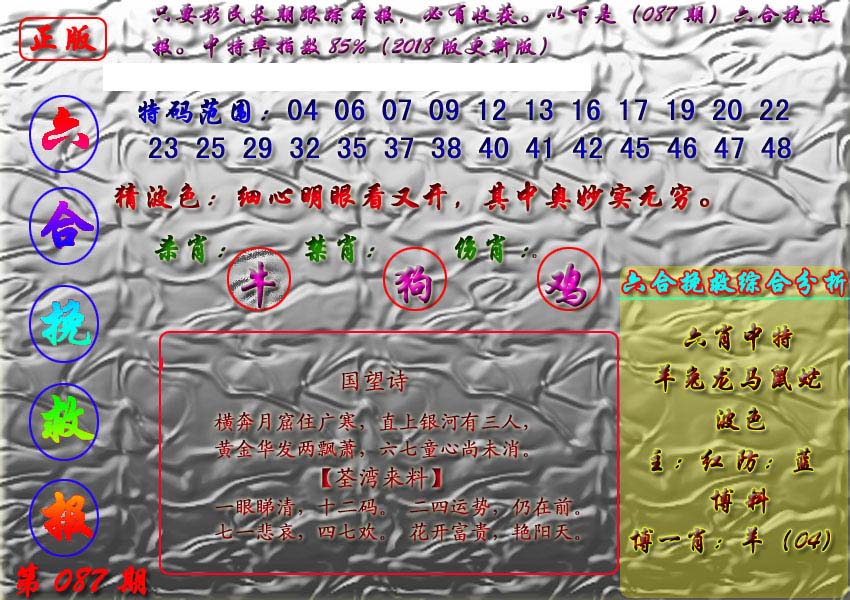 正版
只要彩民长期跟踪本报，必有收获。以下是（087期）六合挽救
报。中特率指数85%（2018版更新版）
六
合
挽
救
报
第087期
特码范围：04 06 07 09 12 13 16 17 19 20 22
23 25 29 32 35 37 38 40 41 42 45 46 47 48
猜波色：细心明眼看又开，其中奥妙实无穷。
杀肖： 禁肖： 伤肖：。
牛 狗 鸡
国望诗
横奔月窟住广寒，直上银河有三人，
黄金华发两飘萧，六七童心尚未消。
【荃湾来料】
一眼睇清，十二码。 二四运势，仍在前。
七一悲哀，四七欢。 花开富贵，艳阳天。
六合挽救综合分析
六肖中特
羊兔龙马鼠蛇
波色
主：红防：蓝
博料
博一肖：羊（04）